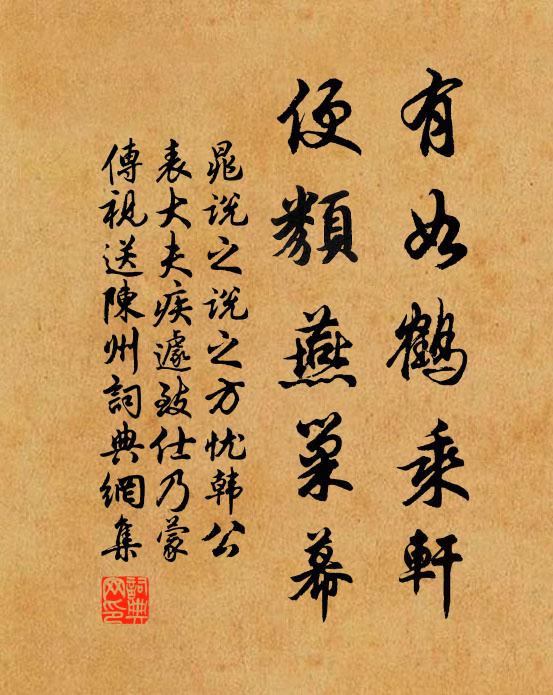 有如鹤乘軒
便類燕巢幕
晁说之说之方忧韩公
表大夫疾遽致仕乃蒙
傳視送陳州詞典網集
詞典网印